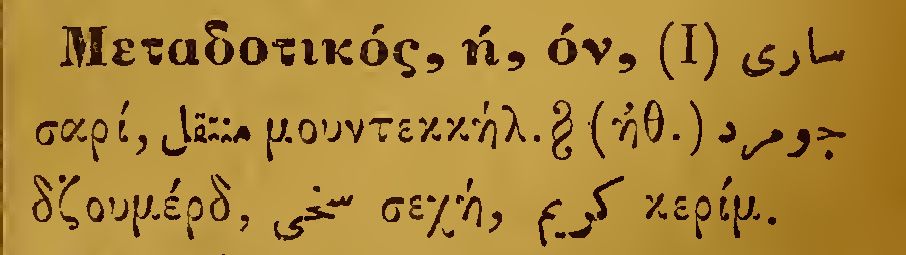 Μεταδοτικός, ή, όν, (Ι) سارى
σαρί, منتقل μουντεκκήλ. § (ἠθ.) جومرد
δζουμέρδ, سخى σεχή, كريم κερίμ.